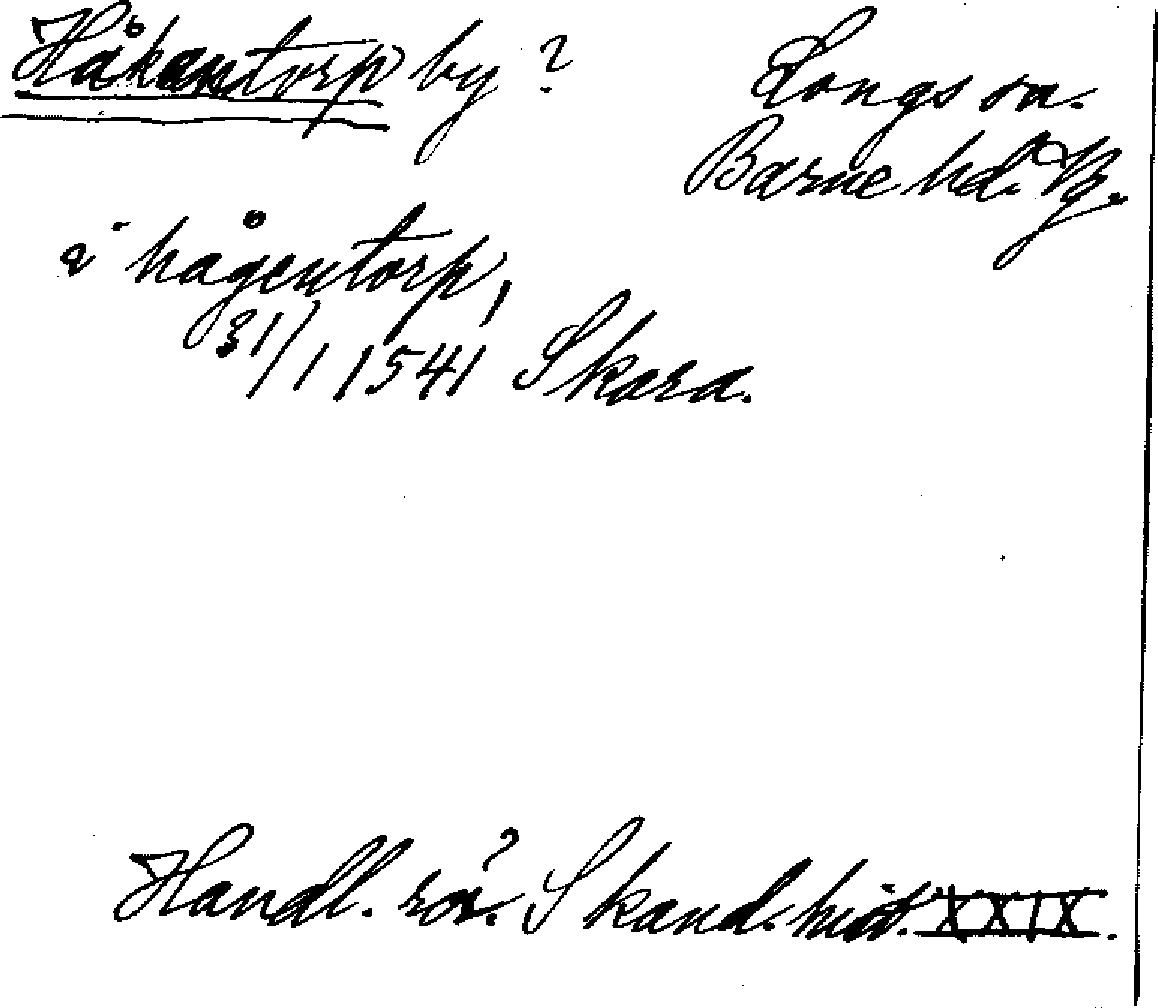 Håkantorp by?
Longs sn.
Barne hd. Vg.
i hågentorp,
31/1 1541 Skara.
Handl. rör. Skand. hist. XXIX.